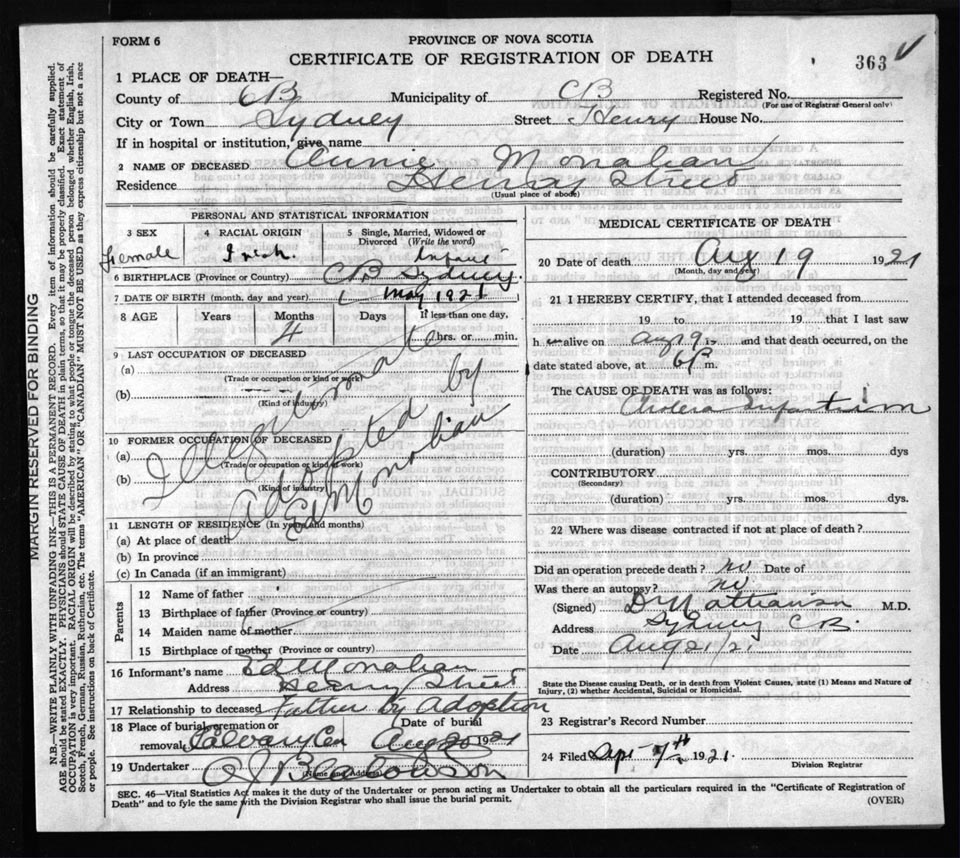 FORM 6
PROVINCE OF NOVA SCOTIA
CERTIFICATE OF REGISTRATION OF DEATH
363
1 PLACE OF DEATH—
County of CB Municipality of CB Registered No.
(For use of Registrar General only)
City or Town Sydney Street Henry House No.
If in hospital or institution, give name
2 NAME OF DECEASED Annie Monahan
Residence Henry Street
(Usual place of abode)
PERSONAL AND STATISTICAL INFORMATION
3 SEX
Female
4 RACIAL ORIGIN
Irish.
5 Single, Married, Widowed or Divorced (Write the word)
Infant
6 BIRTHPLACE (Province or Country) CB Sydney.
7 DATE OF BIRTH (month, day and year) May 1921
8 AGE Years Months Days If less than one day,
4 hrs. or min.
9 LAST OCCUPATION OF DECEASED
(a)
(Trade or occupation or kind or work)
(b)
(Kind of industry)
10 FORMER OCCUPATION OF DECEASED
(a)
(Trade or occupation or kind of work)
(b)
(Kind of industry)
Illegitimate
Adopted by
Ed Monahan
11 LENGTH OF RESIDENCE (In years and months)
(a) At place of death
(b) In province
(c) In Canada (if an immigrant)
Parents
12 Name of father
13 Birthplace of father (Province or country)
14 Maiden name of mother
15 Birthplace of mother (Province or country)
16 Informant's name Ed Monahan
Address Henry Street
17 Relationship to deceased Father by Adoption
18 Place of burial, cremation or removal, Calvary Cem Date of burial Aug 20 1921
19 Undertaker
(Name and Address)
MEDICAL CERTIFICATE OF DEATH
20 Date of death Aug 19 1921
(Month, day and year)
21 I HEREBY CERTIFY, that I attended deceased from
19 to 19 that I last saw
h alive on Aug 19 and that death occurred, on the
date stated above, at 6 P m.
The CAUSE OF DEATH was as follows:
Cholera Infantum
(duration) yrs. mos. dys
CONTRIBUTORY
(Secondary)
(duration) yrs. mos. dys.
22 Where was disease contracted if not at place of death?
Did an operation precede death? no Date of
Was there an autopsy? no
(Signed) M.D.
Address Sydney CB.
Date Aug 21/21
State the Disease causing Death, or in death from Violent Causes, state (1) Means and Nature of
Injury, (2) whether Accidental, Suicidal or Homicidal.
23 Registrar's Record Number
24 Filed Sept 7th 1921.
Division Registrar
SEC. 46—Vital Statistics Act makes it the duty of the Undertaker or person acting as Undertaker to obtain all the particulars required in the "Certificate of Registration of
Death" and to fyle the same with the Division Registrar who shall issue the burial permit.
(OVER)
MARGIN RESERVED FOR BINDING
N.B.—WRITE PLAINLY WITH UNFADING INK—THIS IS A PERMANENT RECORD. Every item of information should be carefully supplied.
AGE should be stated EXACTLY. PHYSICIANS should STATE CAUSE OF DEATH in plain terms, so that it may be properly classified. Exact statement of
OCCUPATION is very important. RACIAL ORIGIN will be described by stating to what people or tongue the deceased person belonged whether English, Irish,
Scotch, French, German, Russian, Ruthenian, etc. The terms "AMERICAN" OR "CANADIAN" MUST NOT BE USED as they express citizenship but not a race
or people. See instructions on back of Certificate.